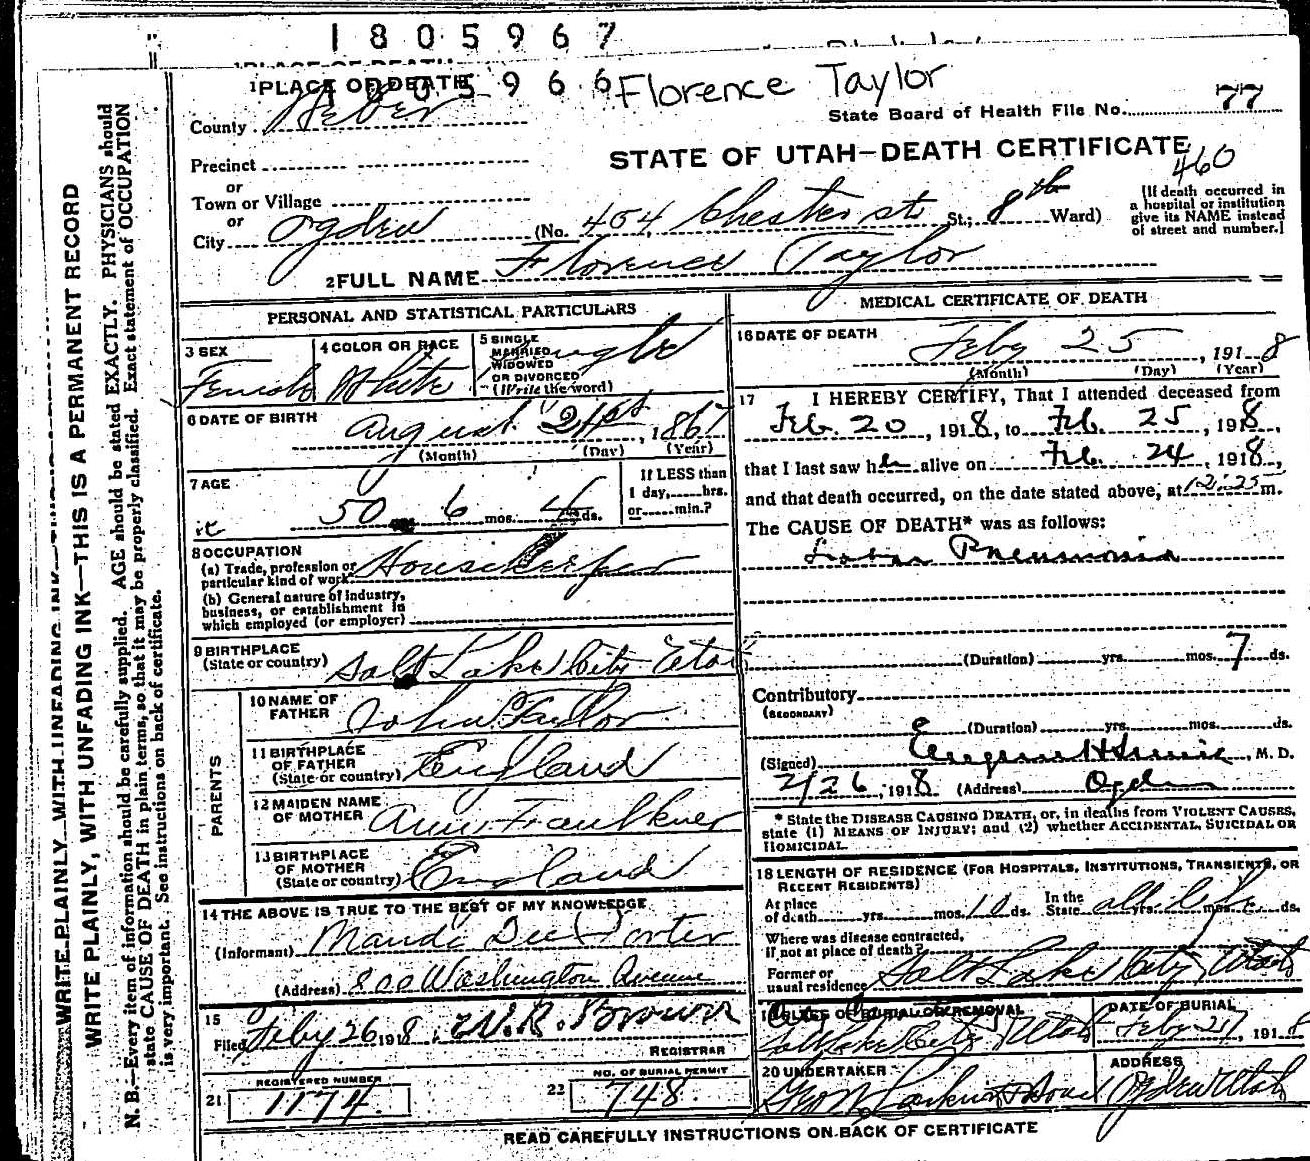 1805967
1 PLACE OF DEATH
1805966
Florence Taylor
County Weber
State Board of Health File No. 77
Precinct
STATE OF UTAH—DEATH CERTIFICATE
460
or
Town or Village
or
City Ogden (No. 454 Chester st St.; 8th Ward)
[If death occurred in
a hospital or institution
give its NAME instead
of street and number.]
2 FULL NAME Florence Taylor
PERSONAL AND STATISTICAL PARTICULARS
3 SEX
Female
4 COLOR OR RACE
White
5 SINGLE
MARRIED
WIDOWED
OR DIVORCED
(Write the word)
Single
6 DATE OF BIRTH
August 21st, 1867
(Month) (Day) (Year)
7 AGE
50 yrs. 6 mos. 4 ds.
If LESS than
1 day,......hrs.
or......min.?
8 OCCUPATION
(a) Trade, profession or
particular kind of work Housekeeper
(b) General nature of industry,
business, or establishment in
which employed (or employer)
9 BIRTHPLACE
(State or country) Salt Lake City Utah
PARENTS
10 NAME OF
FATHER John Taylor
11 BIRTHPLACE
OF FATHER
(State or country) England
12 MAIDEN NAME
OF MOTHER Ann Faulkner
13 BIRTHPLACE
OF MOTHER
(State or country) England
14 THE ABOVE IS TRUE TO THE BEST OF MY KNOWLEDGE
(Informant) Maude Dee Porter
(Address) 800 Washington Avenue
15
Filed Feby 26 1918, W. R. Brown
REGISTRAR
21 REGISTERED NUMBER
1174
22 NO. OF BURIAL PERMIT
748
MEDICAL CERTIFICATE OF DEATH
16 DATE OF DEATH
Feby 25, 1918
(Month) (Day) (Year)
17 I HEREBY CERTIFY, That I attended deceased from
Feb. 20, 1918, to Feb. 25, 1918,
that I last saw her alive on Feb. 24, 1918,
and that death occurred, on the date stated above, at 12:25 m.
The CAUSE OF DEATH* was as follows:
Lobar Pneumonia
(Duration) yrs. mos. 7 ds.
Contributory
(SECONDARY)
(Duration) yrs. mos. ds.
(Signed) Eugene H Smith, M. D.
2/26, 1918 (Address) Ogden
* State the DISEASE CAUSING DEATH, or, in deaths from VIOLENT CAUSES,
state (1) MEANS OF INJURY; and (2) whether ACCIDENTAL, SUICIDAL OR
HOMICIDAL.
18 LENGTH OF RESIDENCE (FOR HOSPITALS, INSTITUTIONS, TRANSIENTS, OR
RECENT RESIDENTS)
At place
of death yrs. mos. 10 ds.
In the
State all life yrs. mos. ds.
Where was disease contracted,
if not at place of death?
Former or
usual residence Salt Lake City, Utah
19 PLACE OF BURIAL OR REMOVAL
Salt Lake City Utah
DATE OF BURIAL
Feby 27, 1918
20 UNDERTAKER
Geo W Larkin & Sons
ADDRESS
Ogden Utah
READ CAREFULLY INSTRUCTIONS ON BACK OF CERTIFICATE
WRITE PLAINLY WITH UNFADING INK
WRITE PLAINLY, WITH UNFADING INK—THIS IS A PERMANENT RECORD
N. B.—Every item of information should be carefully supplied. AGE should be stated EXACTLY. PHYSICIANS should
state CAUSE OF DEATH in plain terms, so that it may be properly classified. Exact statement of OCCUPATION
is very important. See instructions on back of certificate.